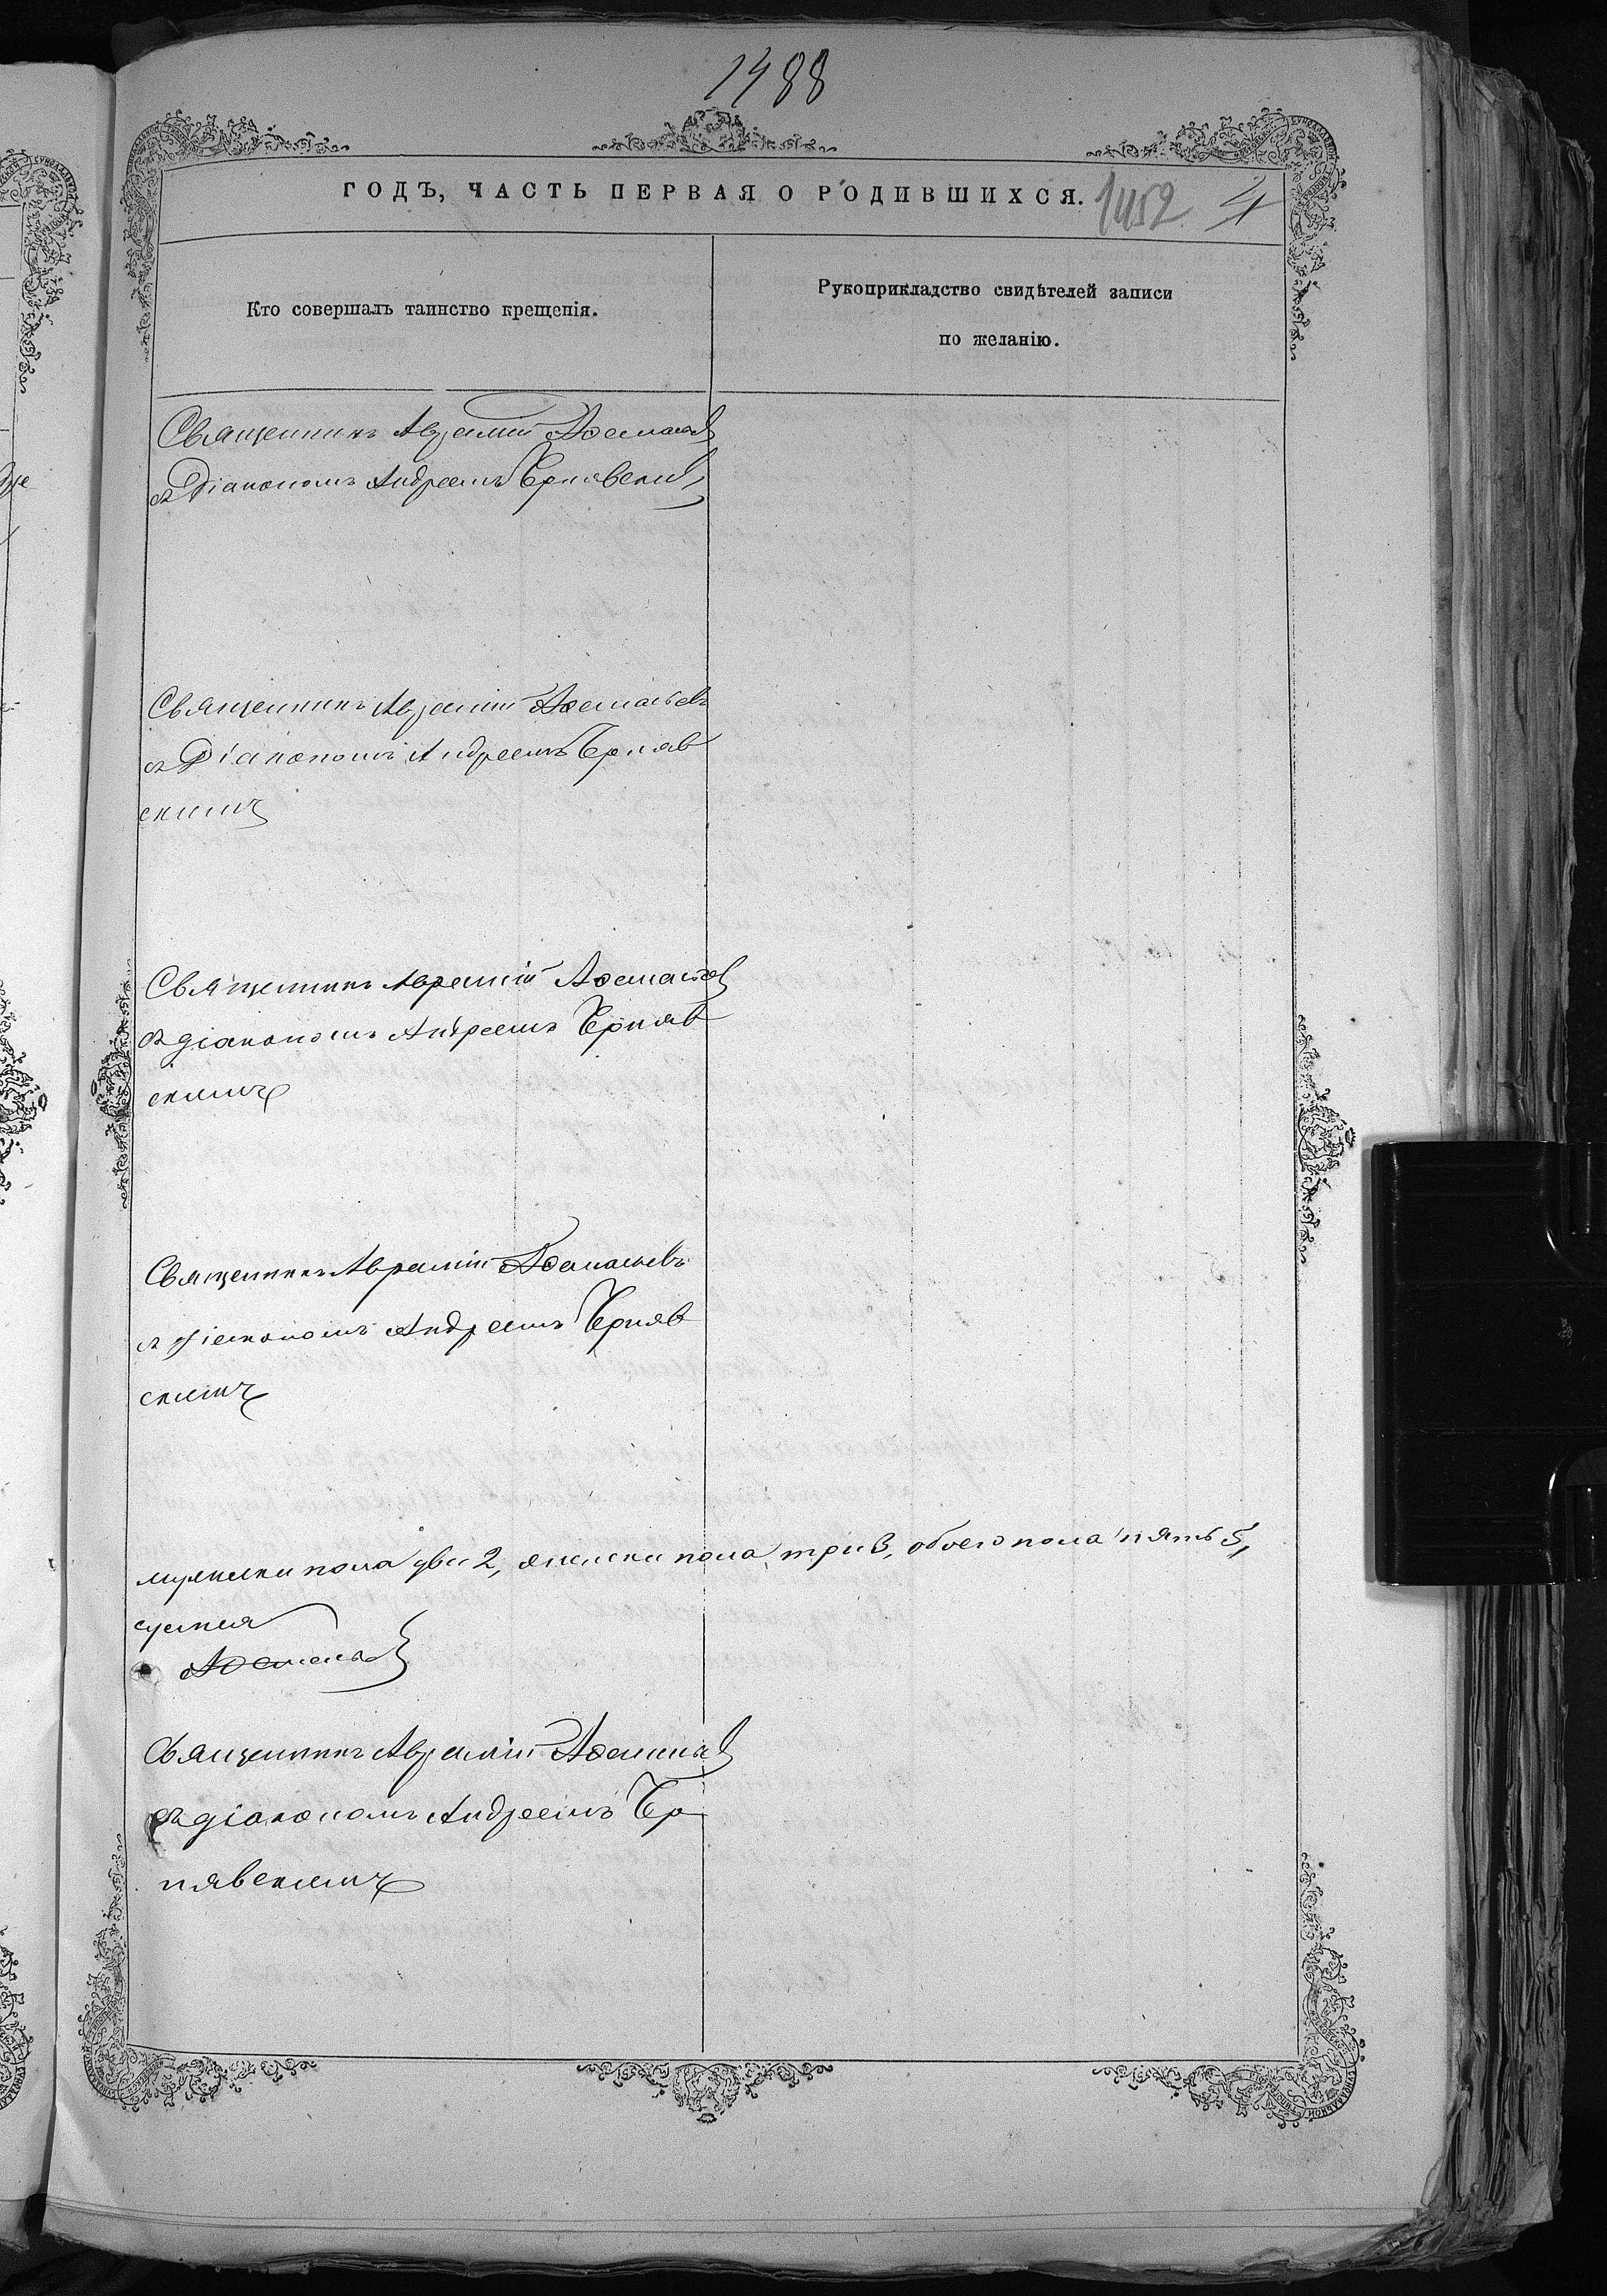 1488
ГОДЪ, ЧАСТЬ ПЕРВАЯ О РОДИВШИХСЯ.
1452 4
Кто совершалъ таинство крещенія.
Рукоприкладство свидѣтелей записи
по желанію.
Священникъ Аврамій
съ Діакономъ Андреемъ Чернявски
Священникъ Аврамій Аѳанасьевъ
съ Діакономъ Андреемъ Черняв
скимъ
Священникъ Аврамій Аѳанасьев
съ діакономъ Андреемъ Черняв
скимъ
Священникъ Аврамій Аѳанасьевъ
съ діакономъ Андреемъ Черняв
скимъ
мужески пола два 2, женски пола три 3, обоего пола пять 5,
Священникъ Аврамій
съ діакономъ Андреемъ Чер
нявскимъ